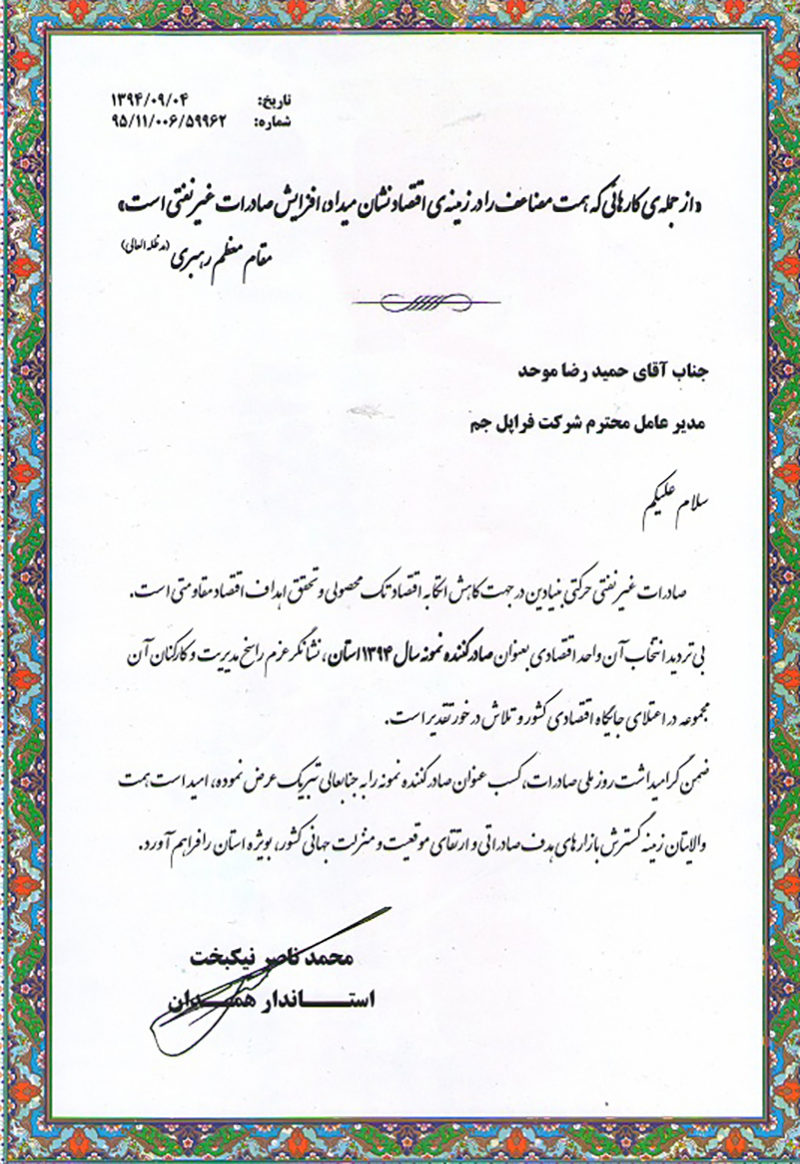 تاریخ: ۱۳۹۴/۰۹/۰۴
شماره: ۹۵/۱۱/۰۰۶/۵۹۹۶۲
«از جمله‌ی کارهائی که همت مضاعف را در زمینه‌ی اقتصاد نشان میداد، افزایش صادرات غیر نفتی است»
مقام معظم رهبری (مدظله العالی)
جناب آقای حمید رضا موحد
مدیر عامل محترم شرکت فراپل جم
سلام علیکم
صادرات غیر نفتی حرکتی بنیادین در جهت کاهش اتکا به اقتصاد تک محصولی و تحقق اهداف اقتصاد مقاومتی است.
بی تردید انتخاب آن واحد اقتصادی بعنوان صادر کننده نمونه سال ۱۳۹۴ استان، نشانگر عزم راسخ مدیریت و کارکنان آن
مجموعه در اعتلای جایگاه اقتصادی کشور و تلاش در خور تقدیر است.
ضمن گرامیداشت روز ملی صادرات، کسب عنوان صادر کننده نمونه را به جنابعالی تبریک عرض نموده، امید است همت
والایتان زمینه گسترش بازارهای هدف صادراتی و ارتقای موقعیت و منزلت جهانی کشور، بویژه استان را فراهم آورد.
محمد ناصر نیکبخت
استاندار همدان